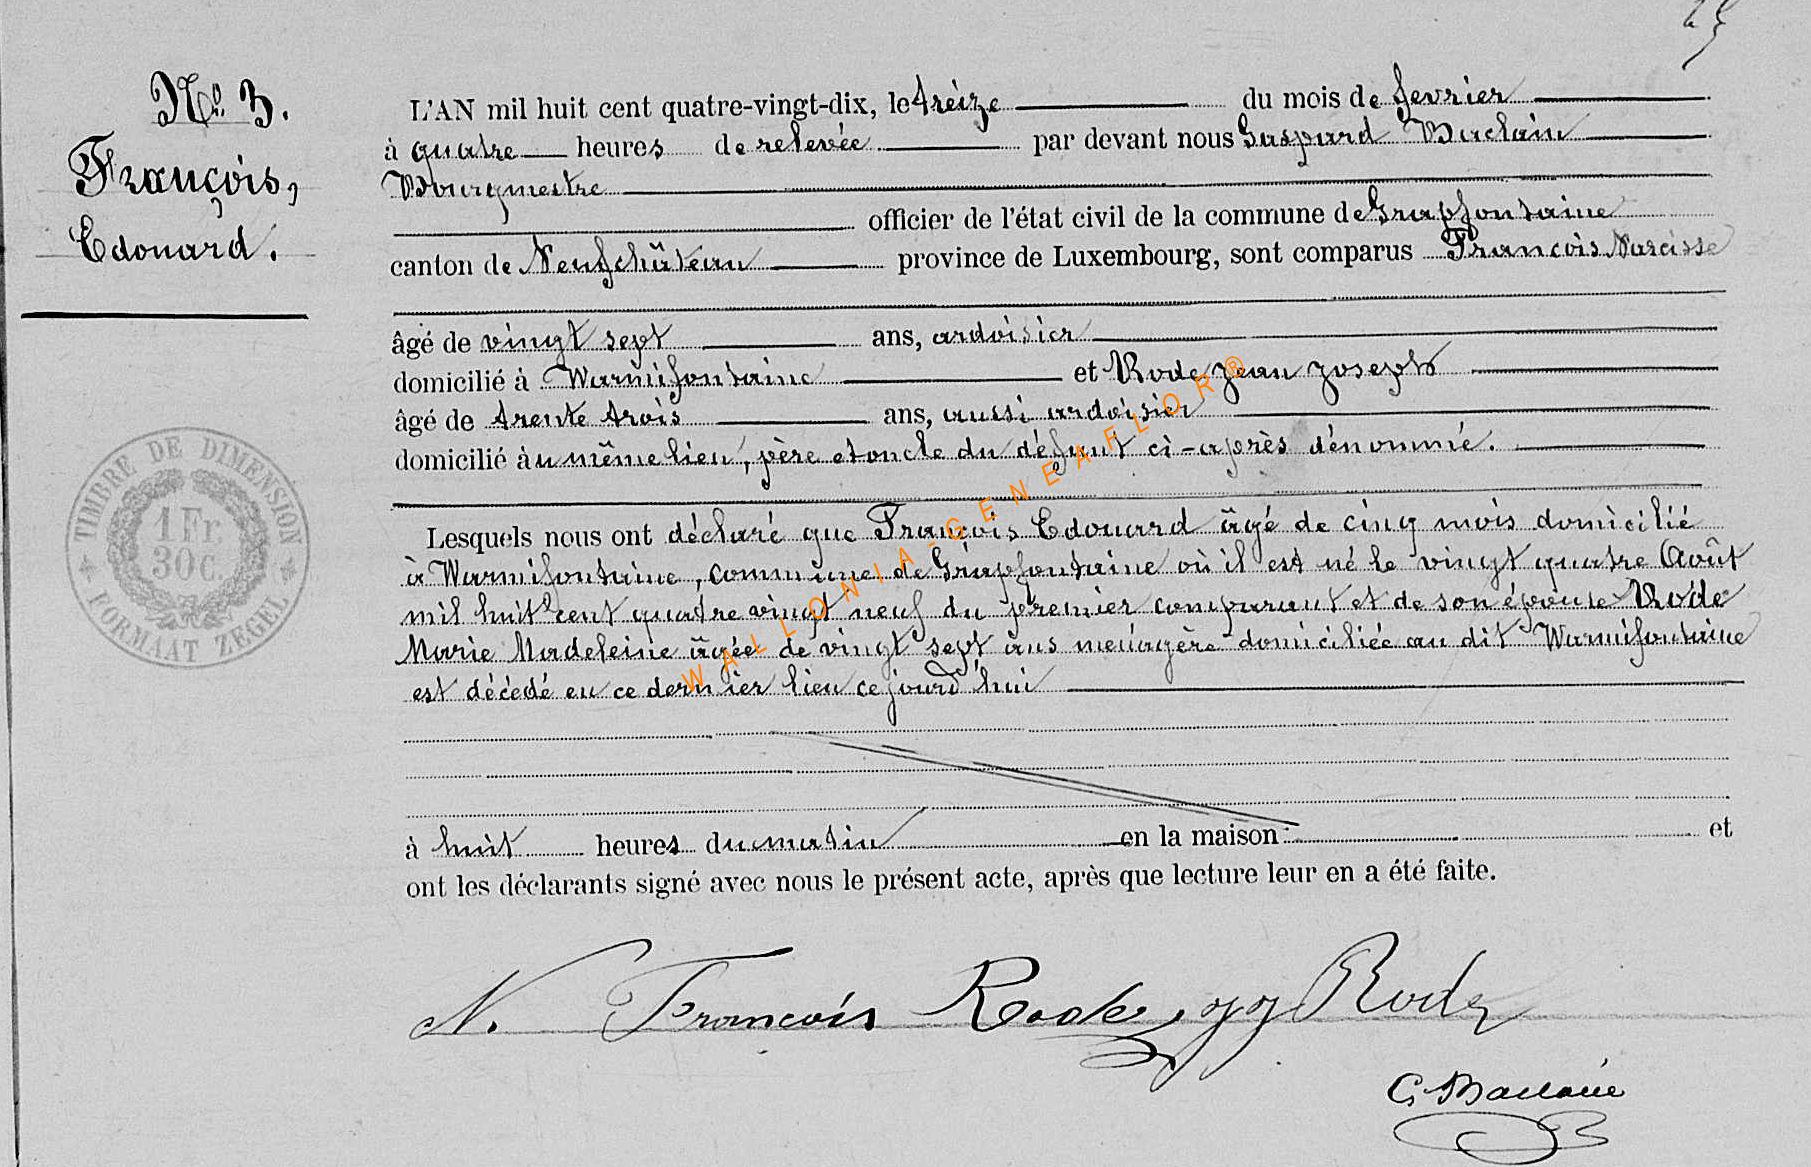 Nº 3.
François,
Edouard.
L'AN mil huit cent quatre-vingt-dix, le treize du mois de fevrier
à quatre heures de relevée par devant nous Gaspard Baclain
Bourgmestre
officier de l'état civil de la commune de Grapfontaine
canton de Neufchâteau province de Luxembourg, sont comparus François Narcisse
âgé de vingt sept ans, ardoisier
domicilié à Warmifontaine et Rode jean joseph
âgé de trente trois ans, aussi ardoisier
domicilié au même lieu, père et oncle du défunt ci-après dénommé.
Lesquels nous ont déclaré que François Edouard âgé de cinq mois domicilié
à Warmifontaine, commune de Grapfontaine où il est né le vingt quatre Août
mil huit cent quatre vingt neuf du premier comparant et de son épouse Rode
Marie Madeleine âgée de vingt sept ans menagère domiciliée au dit Warmifontaine
est décédé en ce dernier lieu ce jourd'hui
à huit heures du matin en la maison et
ont les déclarants signé avec nous le présent acte, après que lecture leur en a été faite.
N. François Rode jj Rode
G. Baclain
TIMBRE DE DIMENSION
1 Fr.
30 C.
FORMAAT ZEGEL
WALLONIA-GENEAFLOR®